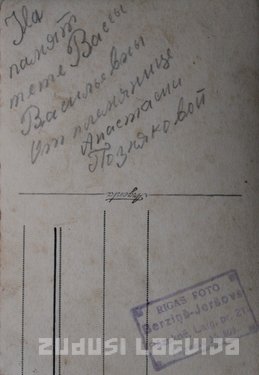 На
память
тете Вассы
Васильевны
От племянице
Анастасии
Позняковой
Agenta
RIGAS FOTO
Berziņš-Jeršovs
zuduši latvija